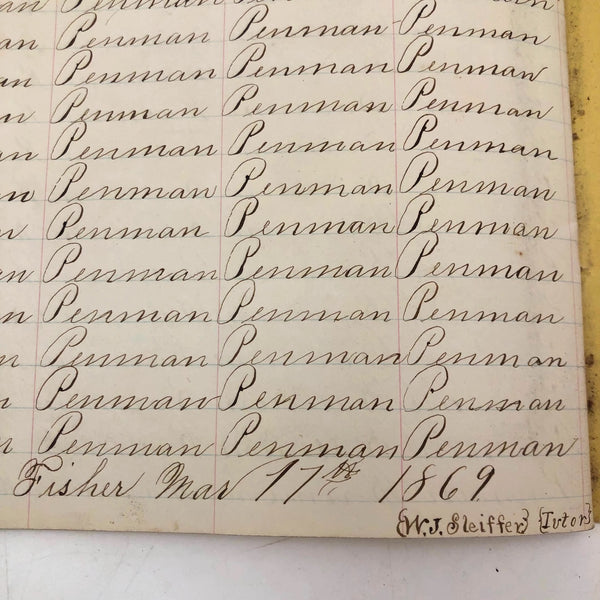 Penman
an Penman Penman Penman
an Penman Penman Penman
n Penman Penman Penman
an Penman Penman Penman
n Penman Penman Penman
n Penman Penman Penman
en Penman Penman Penman
n Penman Penman Penman
n Penman Penman Penman
n Penman Penman Penman
n Penman Penman Penman
Fisher Mar 17th 1869
{W.J. Sleiffer} {Tutor}